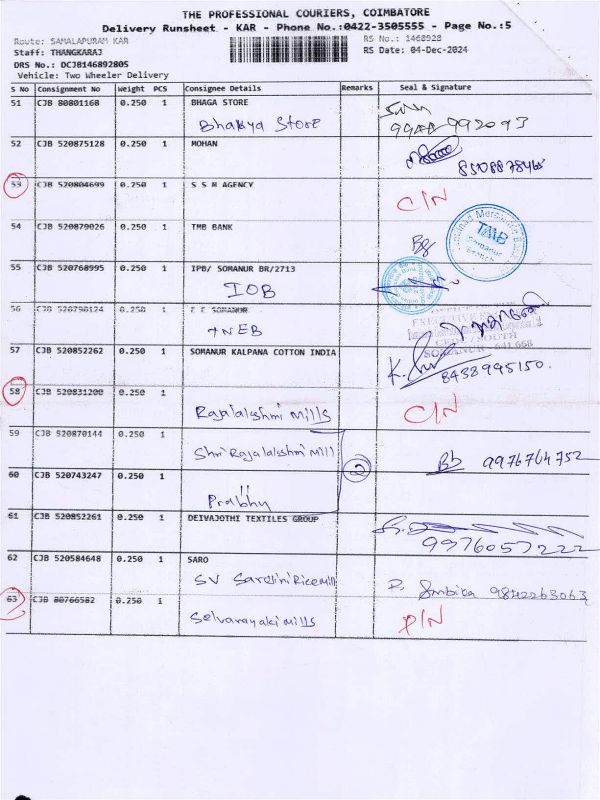 THE PROFESSIONAL COURIERS, COIMBATORE
Delivery Runsheet - KAR - Phone No.:0422-3505555 - Page No.:5
Route: SAMALAPURAM KAR RS No.: 1468928
Staff: THANGKARAJ RS Date: 04-Dec-2024
DRS No.: DCJB146892805
Vehicle: Two Wheeler Delivery
S No Consignment No Weight PCS Consignee Details Remarks Seal & Signature
51 CJB 80801168 0.250 1 BHAGA STORE
Bhakya Store
52 CJB 520875128 0.250 1 MOHAN
53 CJB 520804699 0.250 1 S S M AGENCY
C/N
54 CJB 520879026 0.250 1 TMB BANK
TMB
55 CJB 520768995 0.250 1 IPB/ SOMANUR BR/2713
IOB
56 CJB 520790124 0.250 1 E E SOMANUR
TNEB
57 CJB 520852262 0.250 1 SOMANUR KALPANA COTTON INDIA
8438945150.
58 CJB 520831200 0.250 1
Rajalakshmi Mills C/N
59 CJB 520870144 0.250 1
Shri Rajalakshmi Mill
2
9976764752
60 CJB 520743247 0.250 1
Prabhu
61 CJB 520852261 0.250 1 DEIVAJOTHI TEXTILES GROUP
9976057222
62 CJB 520584648 0.250 1 SARO
SV Sarojini Rice mill
9842263063
63 CJB 80766582 0.250 1
Selvanayaki Mills